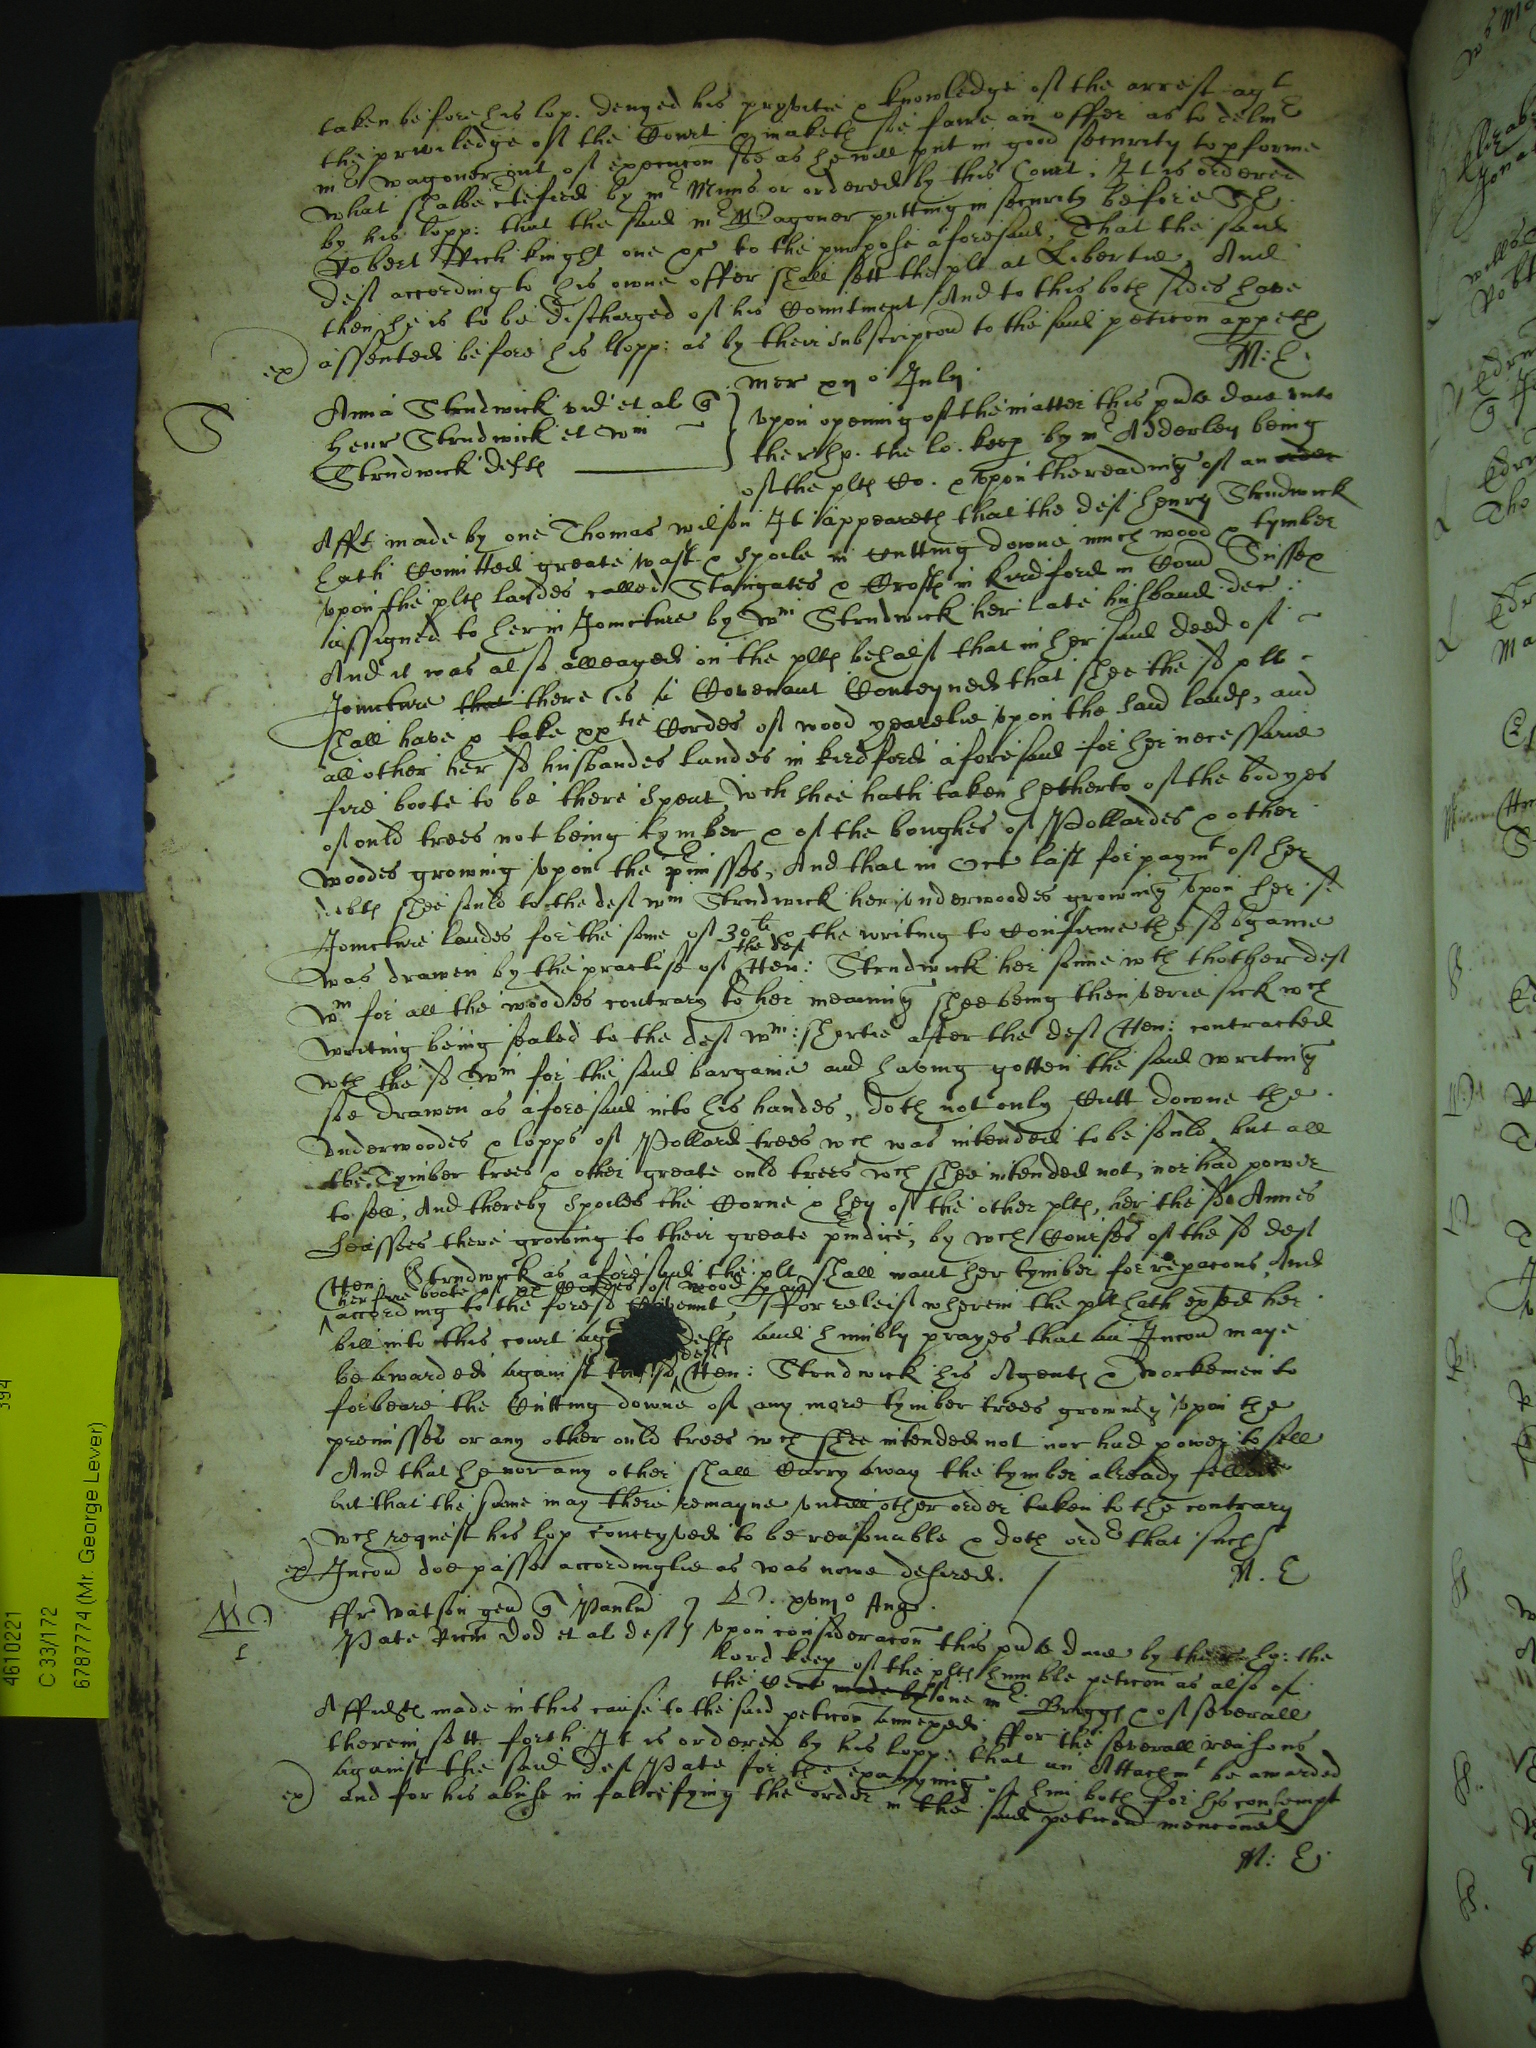 taken before his lop. denyed his pryvitie & knowledge of the arrest agt
the priviledge of the Court & maketh soe faire an offer as to delivr
mr wagoner out of execucon soe as he will put in good security to pforme
what shalbe ctefied by mr Mims or ordered by this Court. It is ordered
by his lopp: that the said mr Wagoner putting in security before Sr
Robert Rich knight one &c to the purpose aforesaid, That the said
deft according to his owne offer shall sett the plt at Libertie And
then he is to be discharged of his Comitment And to this both sides have
ex) assented before his lopp: as by their subscripcon to the said peticon appeth
M: E:
mer xii o July
S
Anna Strudwick vid et al q
Henr Strudwick et wm
Strudwick defts
upon opening of the matter this pnte daie unto
the r. ho. the lo. keep by mr Adderley being
of the plts Co. & upon the reading of an order
Afft made by one Thomas wilson It appeareth that the deft henry Strudwick
hath Comitted greate wast & spoile in Cutting downe much wood & tymber
upon the plts landes called Stangates & Crofts in kirdford in Com Sussex
assigned to her in Joincture by wm Strudwick her late husband dec:
And it was also alleaged on the plts behalf that in her said deed of
Joincture that there is a Covenant Conteyned that shee the sd plt
shall have & take xxtie Cordes of wood yearelie upon the said lands, and
all other her sd husbandes landes in kirdford aforesaid for her necessarie
fire boote to be there spent, wch shee hath taken hetherto of the bodyes
of ould trees not being tymber & of the boughes of Pollardes & other
woodes growing upon the pmisses, And that in Oct last for paymt of her
debts shee sould to the deft wm Strudwick her underwoodes growing upon her sd
Joincture landes for the some of 30li & the writing to confirme the sd bgaine
was drawen by the practise of the deft Hen: Strudwick her sonne wth thother deft
wm for all the woodes contrary to her meaning shee being then verie sick wch
writing being sealed to the deft wm: shortlie after the deft Hen: contracted
wth the sd wm for the said bargaine and having gotten the said writing
soe drawen as aforesaid into his handes, doth not only Cutt downe the
underwoodes & lopps of Pollard trees wch was intended to be sould but all
the Tymber trees & other greate ould trees wch shee intended not, nor had power
to sell, And thereby spoiles the Corne & hey of the other plts, her the sd Annes
Leassees there growing to their greate pindice, by wch Courses of the sd deft
Hen: Strudwick as aforesaid the plt shall want her tymber for repacons And
her fire boote of xx Cordes of wood p ann
according to the foresd Covennt, ffor releif wherein the plt hath exhed her
bill into this court agt defts and humbly prayes that an Incon maye
be awarded against the sd deft Hen: Strudwick his Agents & workemen to
forbeare the Cutting downe of any more tymber trees growing upon the
premisses or any other ould trees wch shee intended not nor had power to sell
And that he nor any other shall Carry away the tymber already felled
but that the same may there remayne untill other order taken to the contrary
wch request his lop conceyved to be reasonable & doth ordr that such
ex) Incon doe passe accordinglie as was nowe desired.
M. E
W
1
ffr watson gen q Paulu
Pate Ricm Dod et al deft
xviii o Aug.
upon consideracon this pnte daie by the r. ho: the
Lord keep of the plts humble peticon as also of
the Cert made by one mr Briggs & of severall
Affidts made in this cause to the said peticon annexed, ffor the severall reasons
therein sett forth It is ordered by his lopp: that an Attachmt be awarded
against the said deft Pate for the exaymyning of him both for his contempt
ex) and for his abuse in falcefying the order in the said peticon menconed
M: E:
4610221
C 33/172
6787774 (Mr. George Lever)
394